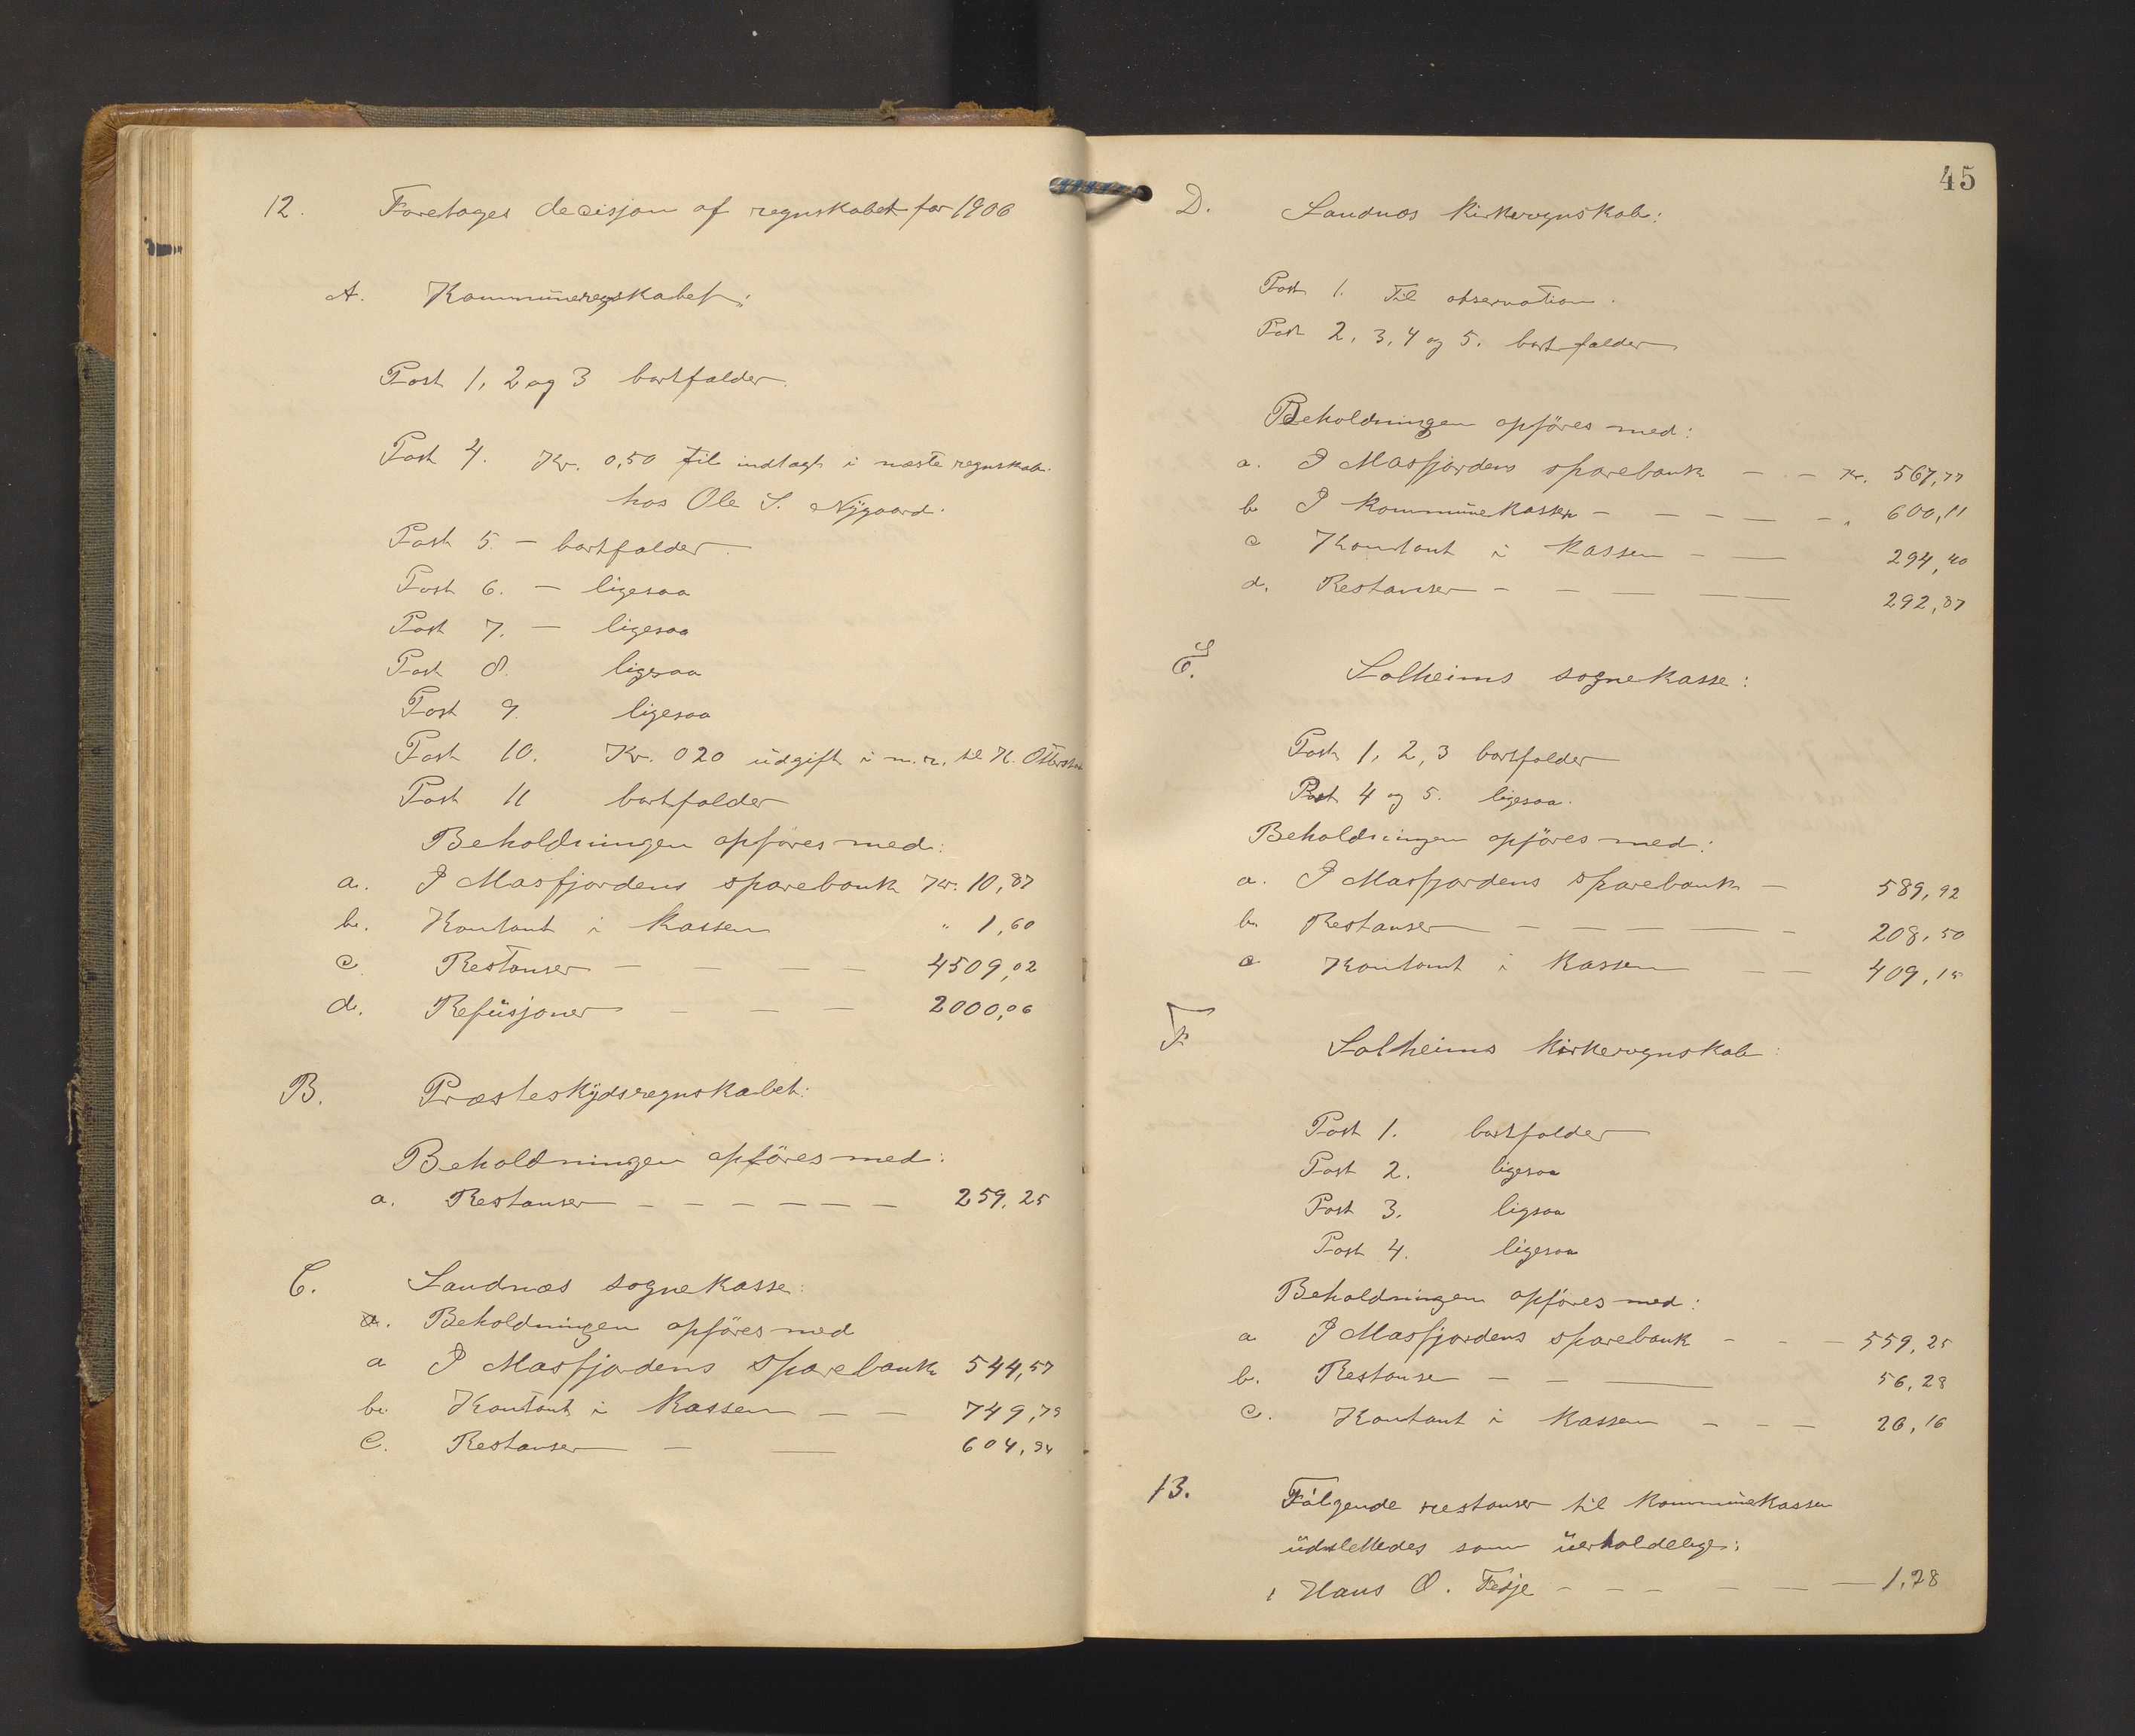 12. Foretages decisjon af regnskabet for 1906
A. Kommuneregskabet:
Post 1, 2 og 3 bortfalder.
Post 4. Kr. 0,50 til indtægt i næste regnskab.
hos Ole S. Nygaard.
Post 5. – bortfalder.
Post 6. – ligesaa
Post 7. – ligesaa
Post 8. ligesaa
Post 9. ligesaa
Post 10. Kr. 020 udgift i n. r. til H.
Post 11 bortfalder
Beholdningen opföres med:
a. I Masfjordens sparebank Kr. 10,87
b. Kontant i Kassen " 1,60
c Restanser – – – – 4509,02
d. Refusjoner – – – 2000,06
B. Præsteskydsregnskabet:
Beholdningen opföres med:
a. Restanser – – – – – – 259,25
C. Sandnæs sognekasse:
Beholdningen opföres med
a I Masfjordens Sparebank 544,57
b. Kontant i Kassen – – 749,79
C. Restanser – – 604,94
45
D. Sandnæs Kirkeregnskab:
Post 1. Til observation.
Post 2, 3, 4 og 5. bortfalder
Beholdningen opföres med:
a. I Masfjordens sparebank – – Kr. 567,77
b I Kommunekassen – – – – – " 600,11
c Kontant i Kassen – – 294,40
d. Restanser – – – – 292,87
E. Solheims sognekasse:
Post 1, 2, 3 bortfalder
Post 4 og 5. ligesaa.
Beholdningen opföres med:
a. I Masfjordens Sparebank – 589,92
b. Restanser – – – – – 208,50
c Kontant i Kassen – – 409,15
F Solheims Kirkeregnskab:
Post 1. bortfalder
Post 2. ligesaa
Post 3. ligsaa
Post 4. ligesaa
Beholdningen opföres med:
a I Masfjordens sparebank – – – 559,25
b. Restanser – – – 56,28
c. Kontant i Kassen – – – 26,16
13. Fölgende restanser til Kommunekassen
udslettedes som uerholdelige:
1 Hans O. Fedje – – – – – – 1,28